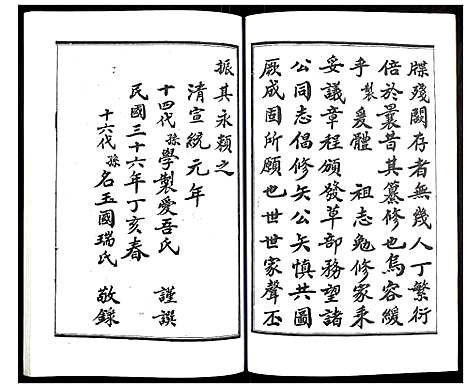 牒殘闕存者無幾人丁繁衍
倍於曩昔其纂修也烏容緩
乎製爰體　祖志勉修家乘
妥議章程頒發草部務望諸
公同志倡修矢公矢慎共圖
厥成固所願也世世家聲丕
振其永賴之
清宣統元年
十四代孫學製愛吾氏　謹譔
民國三十六年丁亥春
十六代孫名玉國瑞氏　敬錄